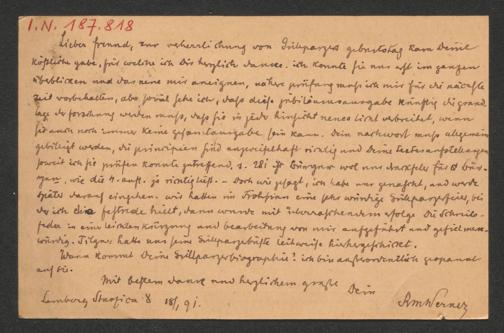 I.N. 187.818
Lieber freund, zur verherrlichung von Grillparzers geburtstag kam Deine
köstliche gabe, für welche ich Dir herzlich danke. ich konnte sie nur erst im ganzen
überblicken und das neue mir aneignen, nähere prüfung muss ich mir für die nächste
zeit vorbehalten, aber soviel sehe ich, dass diese jubiläumsausgabe künftig die grund
lage der forschung werden muss, dass sie in jeder hinsicht neues licht verbreitet, wenn
sie auch noch immer keine gesamtausgabe sein kann. Dein nachwort muss allgemein
gebilligt werden, die principien sind unzweifelhaft richtig und Deine textherstellungen
soweit ich sie prüfen konnte zutreffend. s. 281 ist Bürger wol nur druckfehler für
wie die 4. aufl. ja richtig liest. – Doch wie gesagt, ich habe nur genascht, und werde
später darauf eingehen. wir hatten im Frohsinn eine sehr würdige Grillparzerfeier, bei
der ich die festrede hielt, dann wurde mit überraschendem erfolge
in einer leichten kürzung und bearbeitung von mir aufgeführt und gefiel merk-
würdig. Tilgner hatte uns seine Grillparzerbüste leihweise hierhergeschickt.
Wann kommt Deine Grillparzerbiographie? ich bin außerordentlich gespannt
auf sie.
Mit bestem danke und herzlichem gruße
Dein
Lemberg 8 18/1 91. RMWerner